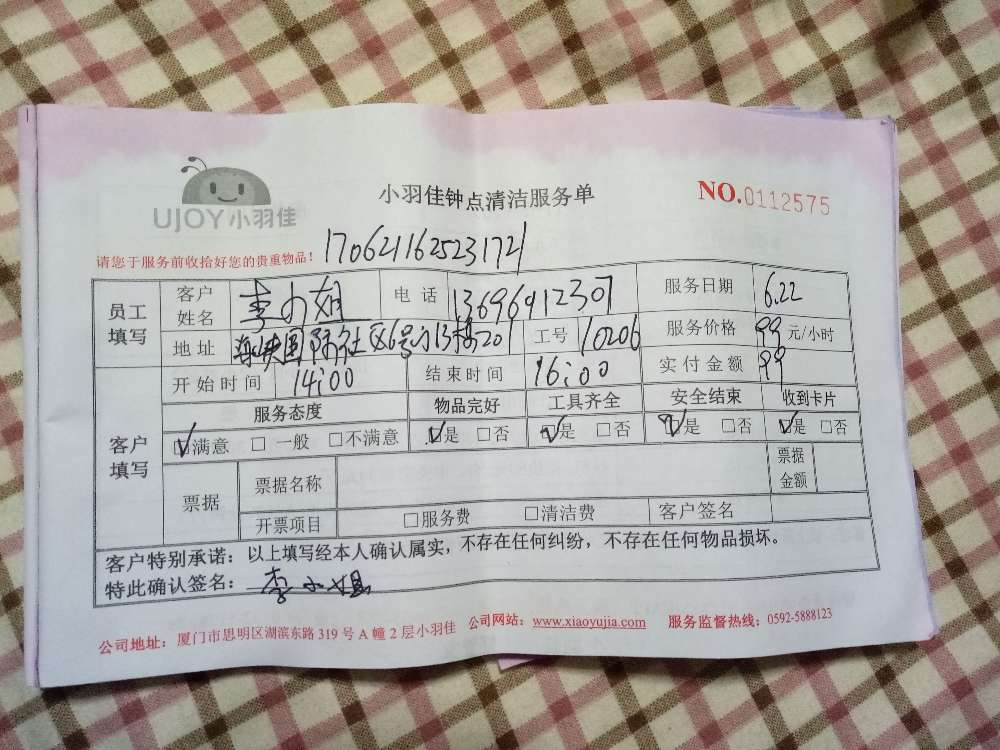 UJOY小羽佳
小羽佳钟点清洁服务单
NO.0112575
请您于服务前收拾好您的贵重物品! 1706211625231721
员工填写 客户姓名 李小姐 电话 13696912307 服务日期 6.22
地址 国际社区6号 13楼201 工号 10206 服务价格 99元/小时
客户填写 开始时间 14:00 结束时间 16:00 实付金额 99
服务态度 物品完好 工具齐全 安全结束 收到卡片
☑满意 □一般 □不满意 ☑是 □否 ☑是 □否 ☑是 □否 ☑是 □否
票据 票据名称 票据金额
开票项目 □服务费 □清洁费 客户签名
客户特别承诺:以上填写经本人确认属实,不存在任何纠纷,不存在任何物品损坏。
特此确认签名:李小姐
公司地址:厦门市思明区湖滨东路319号A幢2层小羽佳 公司网站:www.xiaoyujia.com 服务监督热线:0592-5888123